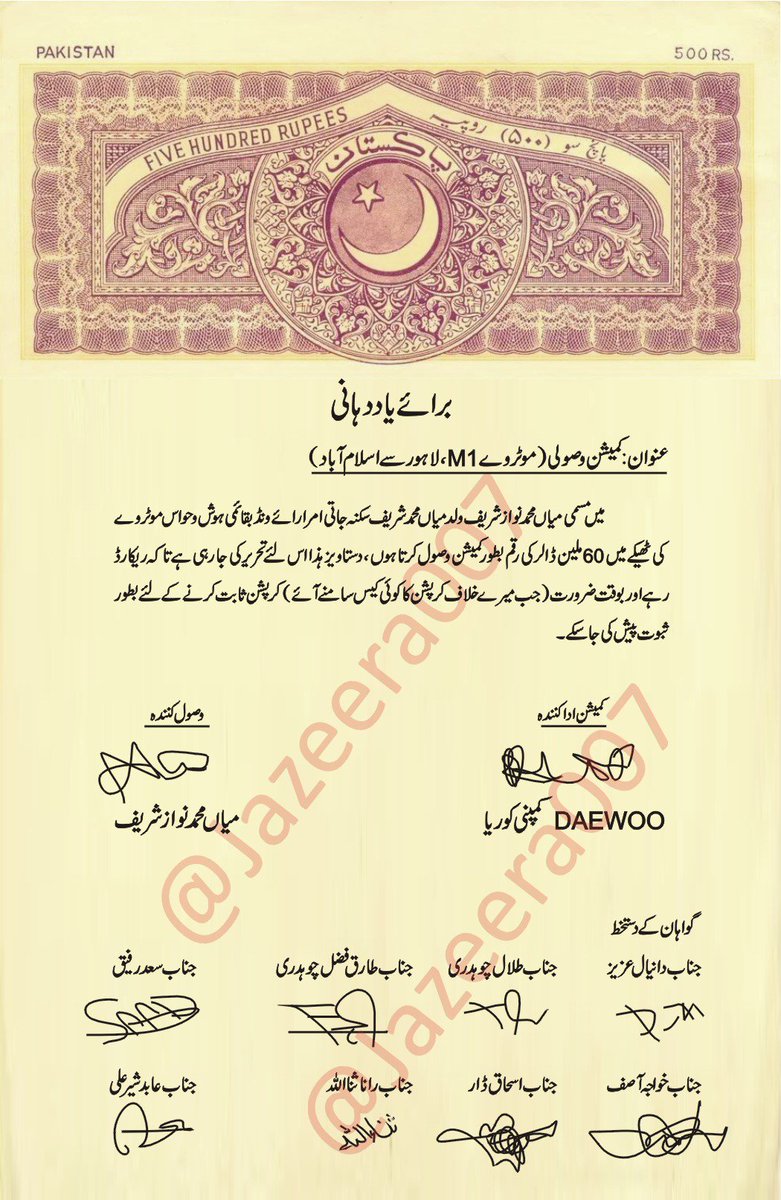 PAKISTAN
500 RS.
FIVE HUNDRED RUPEES
پانچ سو (۵۰۰) روپیہ
پاکستان
برائے یاددہانی
عنوان: کمیشن وصولی (موٹروے M1، لاہور سے اسلام آباد)
میں مسمی میاں محمد نواز شریف ولد میاں محمد شریف سکنہ جاتی امرا رائے ونڈ بقائمی ہوش وحواس موٹروے
کی ٹھیکے میں 60 ملین ڈالر کی رقم بطور کمیشن وصول کرتا ہوں، دستاویز ہذا اس لئے تحریر کی جارہی ہے تاکہ ریکارڈ
رہے اور بوقت ضرورت (جب میرے خلاف کرپشن کا کوئی کیس سامنے آئے) کرپشن ثابت کرنے کے لئے بطور
ثبوت پیش کی جا سکے۔
کمیشن ادا کنندہ
وصول کنندہ
DAEWOO کمپنی کوریا
میاں محمد نواز شریف
گواہان کے دستخط
جناب دانیال عزیز
جناب طلال چوہدری
جناب طارق فضل چوہدری
جناب سعد رفیق
SAAD
جناب خواجہ آصف
جناب اسحاق ڈار
جناب رانا ثنااللہ
جناب عابد شیر علی
ثنااللہ
@Jazeera007
@Jazeera007